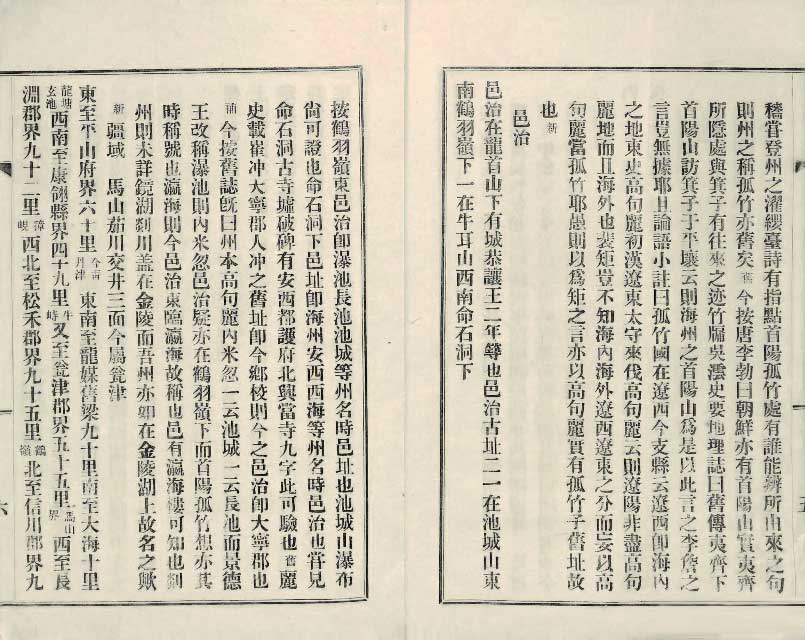 稽嘗登州之濯纓臺詩有指點首陽孤竹處有誰能辨所由來之句
則州之稱孤竹亦舊矣舊今按唐李勃曰朝鮮亦有首陽山實夷齊
所隱處與箕子有往來之迹竹牖吳澐史要地理誌曰舊傳夷齊下
首陽山訪箕子于平壤云則海州之首陽山爲是以此言之李詹之
言豈無據耶且論語小註曰孤竹國在遼西今支縣云遼西卽海內
之地東史高句麗初漢遼東太守來伐高句麗云則遼陽非盡高句
麗地而且海外也裴矩豈不知海內海外遼西遼東之分而妄以高
句麗當孤竹耶愚則以爲矩之言亦以高句麗實有孤竹子舊址故
也新
邑治
邑治在龍首山下有城恭讓王二年築也邑治古址二一在池城山東
南鶴羽嶺下一在牛耳山西南命石洞下
按鶴羽嶺東邑治卽瀑池長池池城等州名時邑址也池城山瀑布
尙可證也命石洞下邑址卽海州安西西海等州名時邑治也嘗見
命石洞古寺墟破碑有安西都護府北與當寺九字此可驗也舊麗
史載崔冲大寧郡人冲之舊址卽今鄕校則今之邑治卽大寧郡也
補今按舊誌旣曰州本高句麗內米忽一云池城一云長池而景德
王改稱瀑池則內米忽邑治疑亦在鶴羽嶺下而首陽孤竹想亦其
時稱號也瀛海則今邑治東臨瀛海故稱也邑有瀛海樓可知也剡
州則未詳鏡湖剡川盖在金陵而吾州亦如在金陵湖上故名之歟
新疆域 馬山茄川交井三面今屬瓮津
東至平山府界六十里今甫丹津東南至龍媒舊梁九十里南至大海十里
龍塘玄池西南至康翎縣界四十九里牛峙又至瓮津郡界五十五里馬山界西至長
淵郡界九十二里獐峴西北至松禾郡界九十五里鶴嶺北至信川郡界九
五
六